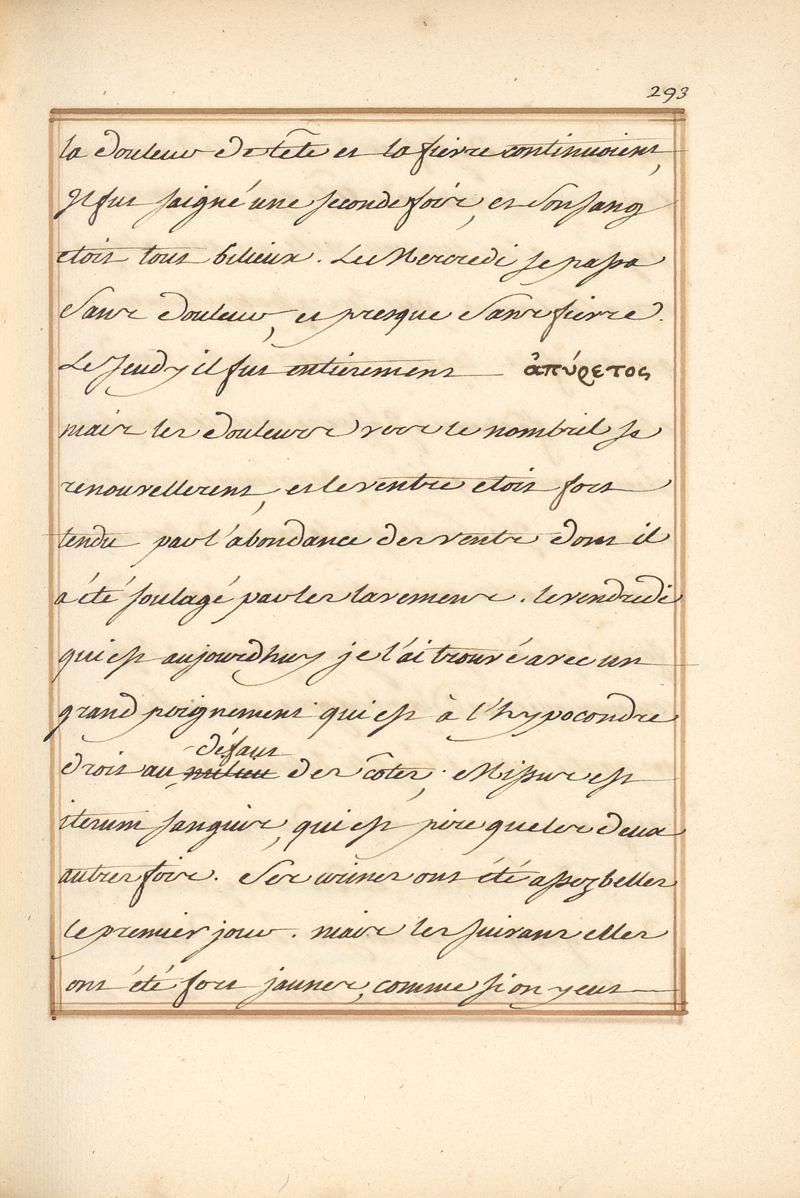 293
la douleur de tête et la fievre continuoient,
Il fut saigné une seconde fois, et son sang
etoit tout bilieux. Le Mercredi se passa
sans douleur, et presque sans fievre.
Le Jeudy il fut entierement ἀπύρετος
mais les douleurs vers le nombril se
renouvellerent, et le ventre etoit fort
tendu par l'abondance des vents dont il
a été soulagé par les lavemens. le vendredi
qui est aujourdhuy je l'ai trouvé avec un
grand poignement qui est à l'hypocondre
défaut
droit au milieu des côtes; Missus est
iterum sanguis, qui est pire que les deux
autres fois. Ses urines ont été assez belles
le premier jour. mais les suivans elles
ont été fort jaunes, comme si on y eut